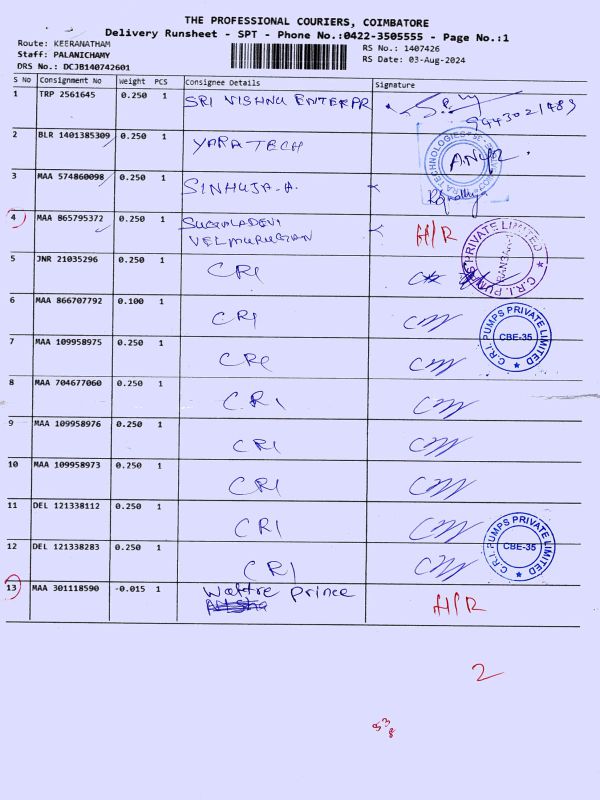 THE PROFESSIONAL COURIERS, COIMBATORE
Delivery Runsheet - SPT - Phone No.:0422-3505555 - Page No.:1
Route: KEERANATHAM
Staff: PALANICHAMY
DRS No.: DCJB140742601
RS No.: 1407426
RS Date: 03-Aug-2024
S No Consignment No Weight PCS Consignee Details Signature
1 TRP 2561645 0.250 1 SRI VISHNU ENTERPR
2 BLR 1401385309 0.250 1 YARA TECH
3 MAA 574860098 0.250 1 SINHUJA.A.
4 MAA 865795372 0.250 1 SUGULADEVI VELMURUGAN H/R
5 JNR 21035296 0.250 1 CRI
6 MAA 866707792 0.100 1 CRI
7 MAA 109958975 0.250 1 CRI
8 MAA 704677060 0.250 1 CRI
9 MAA 109958976 0.250 1 CRI
10 MAA 109958973 0.250 1 CRI
11 DEL 121338112 0.250 1 CRI
12 DEL 121338283 0.250 1 CRI
13 MAA 301118590 -0.015 1 Waffre prince H/R
C.R.I. PUMPS PRIVATE LIMITED
CBE-35
C.R.I. PUMPS PRIVATE LIMITED
CBE-35
2